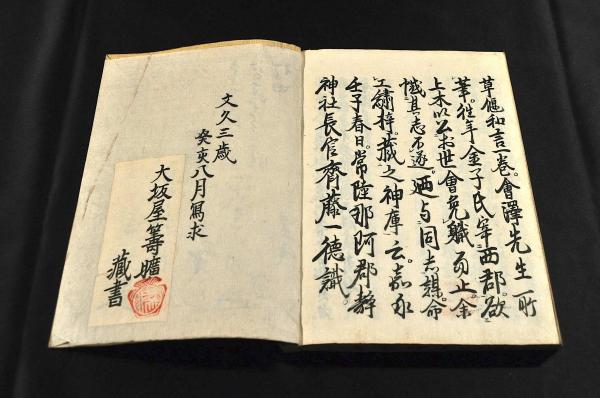 草偃和言一卷。會澤先生所
著。往年金子氏宰西郡。欲
上木以公於世會免職而止。余
憾其志不遂。廼与同志謀。命
工繡梓。藏之神庫云。嘉永
壬子春日。常陸那阿郡靜
神社長官齊藤一德識。
文久三歳
癸亥八月寫求
大坂屋籌曠
藏書